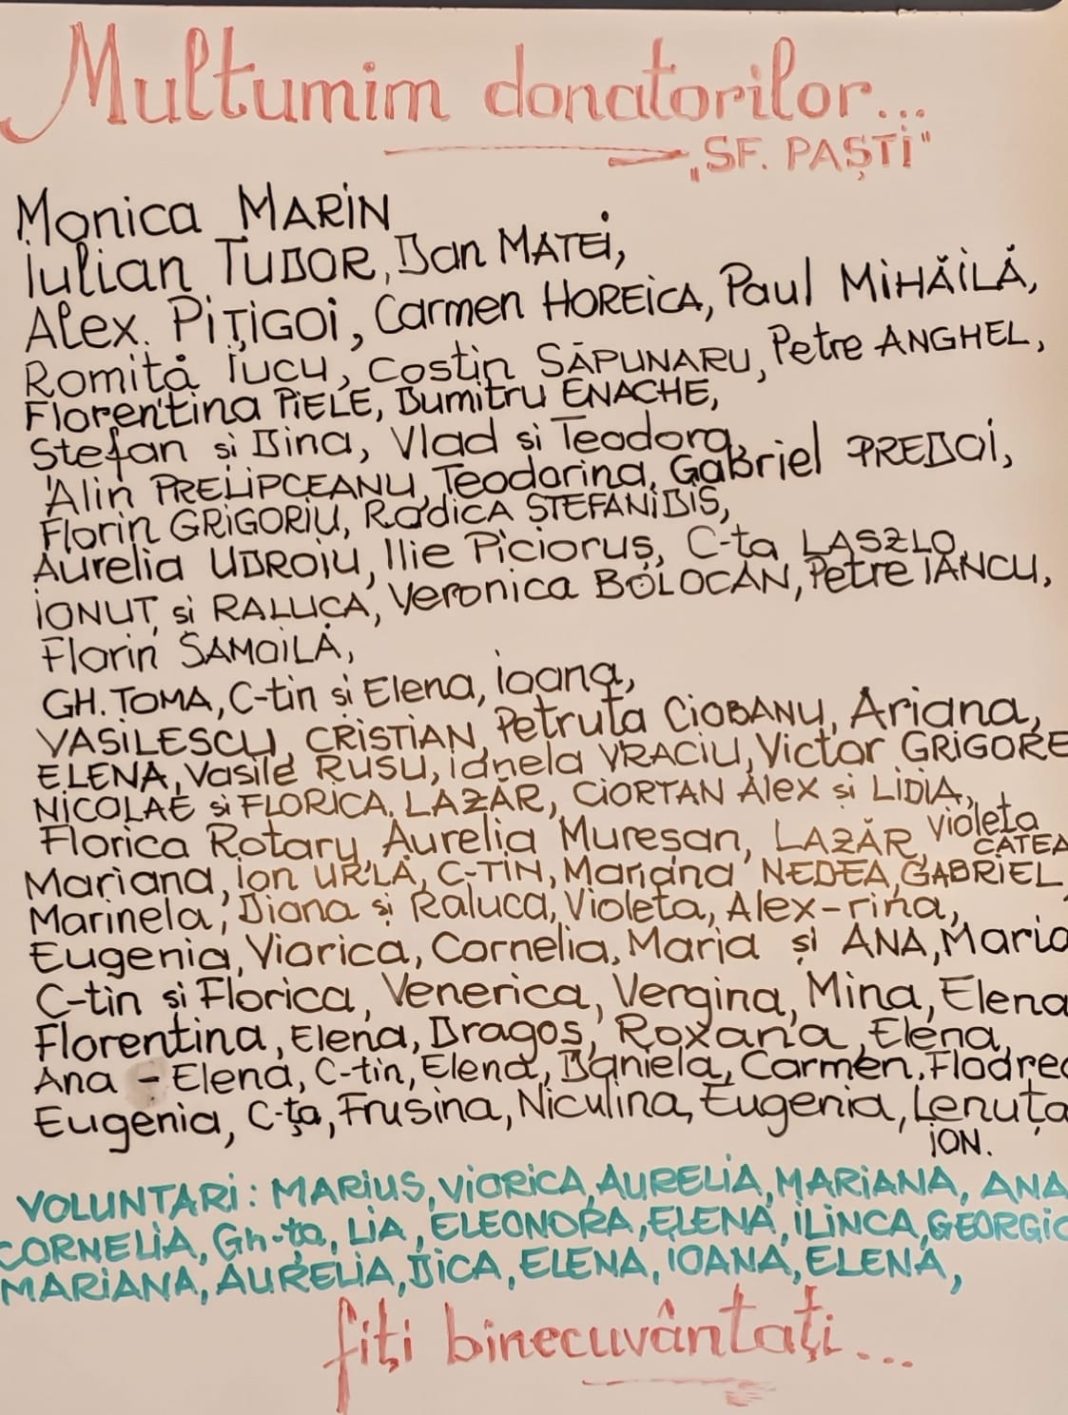 Multumim donatorilor...
„SF. PAȘTI"
Monica MARIN
Iulian TUDOR, Dan MATEI,
Alex. PIȚIGOI, Carmen HOREICA, Paul MIHĂILĂ,
Romită Iucu, Costin SĂPUNARU, Petre ANGHEL,
Florentina PIELE, Dumitru ENACHE,
Stefan și Dina, Vlad și Teodora,
Alin PRELIPCEANU, Teodorina, Gabriel PREDOI,
Florin GRIGORIU, Radica STEFANIDIS,
Aurelia UDROIU, Ilie Piciorus, C-ta LASZLO,
IONUT și RALUCA, Veronica BOLOCAN, Petre IANCU,
Florin SAMOILĂ,
GH. TOMA, C-tin și Elena, ioana,
VASILESCU CRISTIAN, Petruta CIOBANU, Ariana,
ELENA, Vasile RUSU, ianela VRACIU, Victor GRIGORE
NICOLAE și FLORICA, LAZĂR, CIORTAN Alex și LIDIA,
Florica Rotaru, Aurelia Muresan, LAZĂR Violeta
CATEA
Mariana, Ion URLĂ, C-TIN, Mariana NEDEA, GABRIEL
Marinela, Diana și Raluca, Violeta, Alex-rina,
Eugenia, Viorica, Cornelia, Maria și ANA, Maria
C-tin și Florica, Venerica, Vergina, Mina, Elena
Florentina, Elena, Dragos, Roxana, Elena,
Ana - Elena, C-tin, Elena, Daniela, Carmen, Floarec
Eugenia, C-ța, Frusina, Niculina, Eugenia, Lenuța
ION.
VOLUNTARI: MARIUS, VIORICA, AURELIA, MARIANA, ANA
CORNELIA, Gh-ța, LIA, ELEONORA, ELENA, ILINCA, GEORGIC
MARIANA, AURELIA, DICA, ELENA, IOANA, ELENA,
fiți binecuvântați...